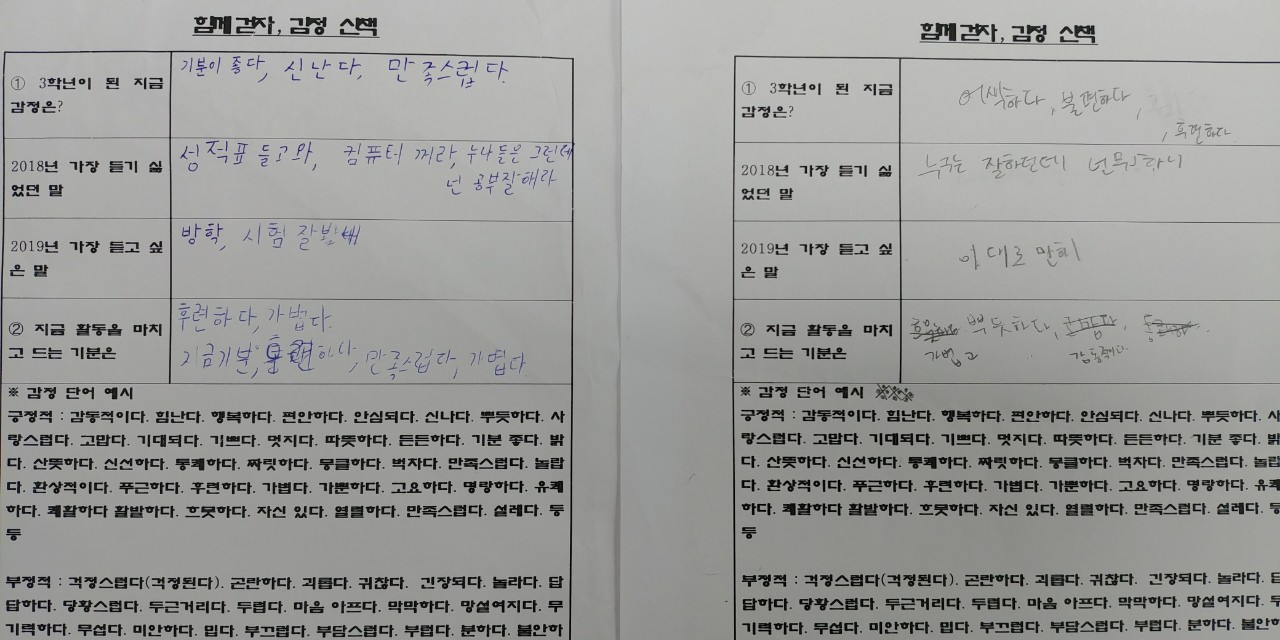 힘께걷자, 감정 산책
① 3학년이 된 지금
감정은?
기분이 좋다, 신난다, 만족스럽다.
2018년 가장 듣기 싫
었던 말
성적표 들고와, 컴퓨터 꺼라, 누나들은 그런데
넌 공부잘해라
2019년 가장 듣고 싶
은 말
방학, 시험 잘봤네
② 지금 활동을 마치
고 드는 기분은
후련하다, 가볍다.
지금기분, 만족스럽다, 가볍다
※ 감정 단어 예시
긍정적 : 감동적이다. 힘난다. 행복하다. 편안하다. 안심되다. 신나다. 뿌듯하다. 사
랑스럽다. 고맙다. 기대되다. 기쁘다. 멋지다. 따뜻하다. 든든하다. 기분 좋다. 밝
다. 산뜻하다. 신선하다. 통쾌하다. 짜릿하다. 뭉클하다. 벅차다. 만족스럽다. 놀랍
다. 환상적이다. 푸근하다. 후련하다. 가볍다. 가뿐하다. 고요하다. 명랑하다. 유쾌
하다. 쾌활하다 활발하다. 흐뭇하다. 자신 있다. 열렬하다. 만족스럽다. 설레다. 등
등
부정적 : 걱정스럽다(걱정된다). 곤란하다. 괴롭다. 귀찮다. 긴장되다. 놀라다. 답
답하다. 당황스럽다. 두근거리다. 두렵다. 마음 아프다. 막막하다. 망설여지다. 무
기력하다. 무섭다. 미안하다. 밉다. 부끄럽다. 부담스럽다. 부럽다. 분하다. 불안하
힘께걷자, 감정 산책
① 3학년이 된 지금
감정은?
어색하다, 불편하다,
, 후련하다.
2018년 가장 듣기 싫
었던 말
누구는 잘하던데 넌 뭐하니
2019년 가장 듣고 싶
은 말
이대로 만해
② 지금 활동을 마치
고 드는 기분은
뿌듯하다,
가볍고
※ 감정 단어 예시
긍정적 : 감동적이다. 힘난다. 행복하다. 편안하다. 안심되다. 신나다. 뿌듯하다. 사
랑스럽다. 고맙다. 기대되다. 기쁘다. 멋지다. 따뜻하다. 든든하다. 기분 좋다. 밝
다. 산뜻하다. 신선하다. 통쾌하다. 짜릿하다. 뭉클하다. 벅차다. 만족스럽다. 놀랍
다. 환상적이다. 푸근하다. 후련하다. 가볍다. 가뿐하다. 고요하다. 명랑하다. 유쾌
하다. 쾌활하다 활발하다. 흐뭇하다. 자신 있다. 열렬하다. 만족스럽다. 설레다. 등
등
부정적 : 걱정스럽다(걱정된다). 곤란하다. 괴롭다. 귀찮다. 긴장되다. 놀라다. 답
답하다. 당황스럽다. 두근거리다. 두렵다. 마음 아프다. 막막하다. 망설여지다. 무
기력하다. 무섭다. 미안하다. 밉다. 부끄럽다. 부담스럽다. 부럽다. 분하다. 불안하